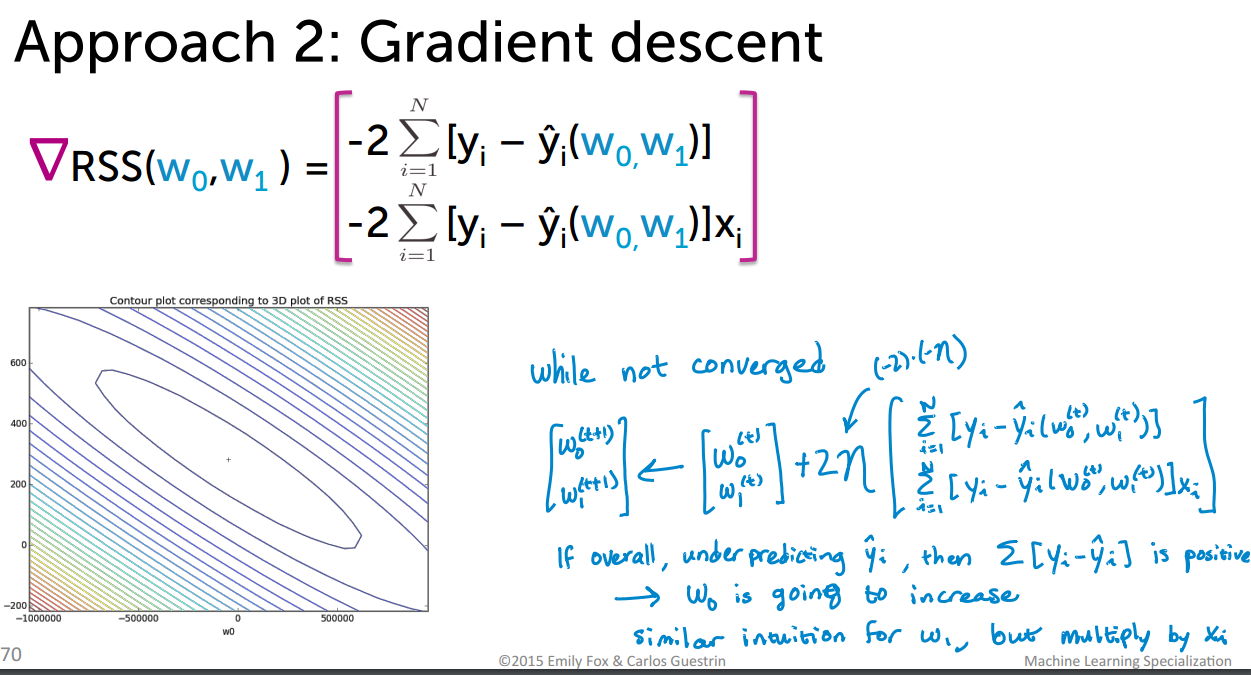 Approach 2: Gradient descent
∇RSS(w₀,w₁) = [ -2 ∑_{i=1}^{N} [yᵢ – ŷᵢ(w₀,w₁)]
-2 ∑_{i=1}^{N} [yᵢ – ŷᵢ(w₀,w₁)]xᵢ ]
Contour plot corresponding to 3D plot of RSS
600
400
200
0
−200
−1000000 −500000 0 500000
w0
while not converged (-2)·(-η)
[ w₀^(t+1) ← [ w₀^(t) +2η [ ∑_{i=1}^{N} [yᵢ - ŷᵢ(w₀^(t), w₁^(t))]
w₁^(t+1) ] w₁^(t) ] ∑_{i=1}^{N} [yᵢ - ŷᵢ(w₀^(t), w₁^(t))]xᵢ ]
If overall, underpredicting ŷᵢ, then Σ[yᵢ-ŷᵢ] is positive
→ w₀ is going to increase
similar intuition for w₁, but multiply by xᵢ
70
©2015 Emily Fox & Carlos Guestrin
Machine Learning Specialization